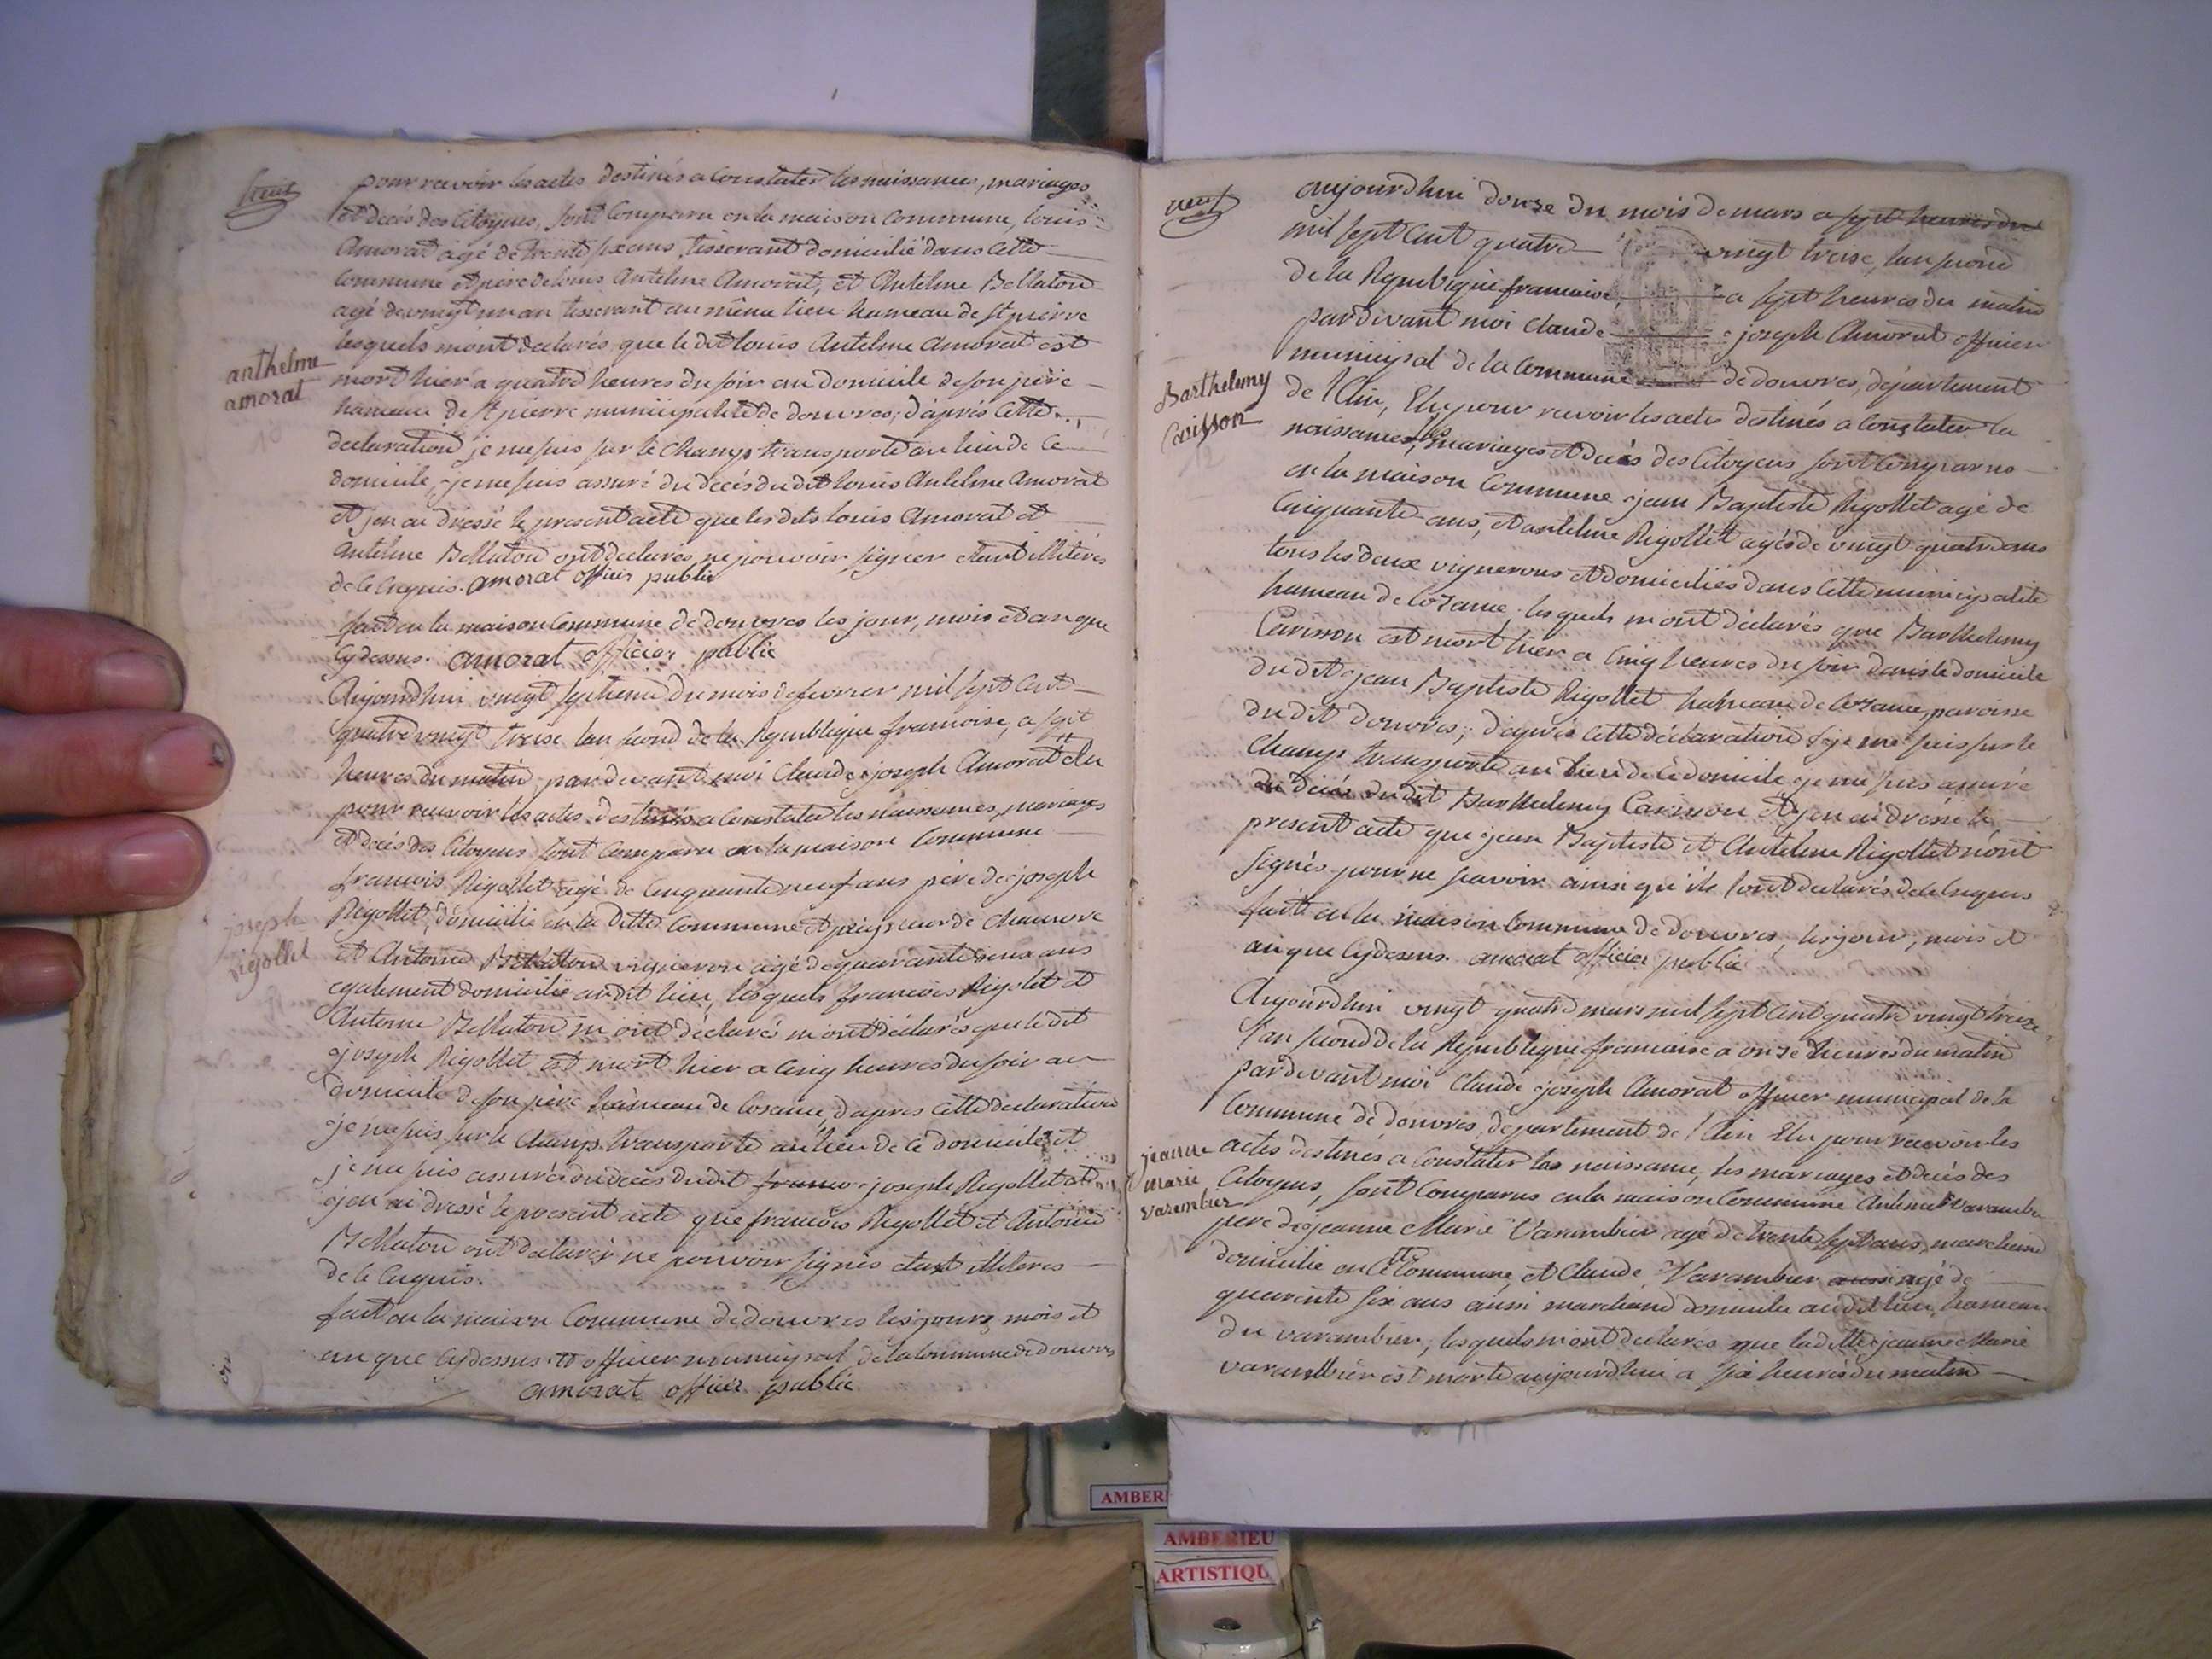 huit
pour recevoir les actes destinés a Constater les naissances, mariages
et décés des Citoyens, sont Comparu en la maison Commune, louis
Amorat agé de trente six ans, tisserant domicilié dans Cette
Commune et pere de louis Antelme Amorat, et Antelme Bellaton
agé de vingt un an tisserant au même lieu hameau de st pierre
lesquels m'ont déclarés que le dit louis Antelme Amorat est
anthelme
amorat
mort hier a quatre heures du soir au domicile de son père
hameau de st pierre municipalité de douvres, d'après Cette
declaration je me suis sur le Champs transporté au lieu de Ce
domicile, je me suis assuré du décés du dit louis Antelme Amorat
et j'en ai dressé le present acte que les dits louis Amorat et
Antelme Bellaton ont déclarés ne pouvoir signer etant illiterés
de Ce Enquis. amorat officier public
fait en la maison Commune de douvres les jour, mois et an que
Cydessus. amorat officier public
Aujourdhui vingt septieme du mois de fevrier mil sept Cent
quatre vingt treise lan second de la Republique francoise, a sept
heures du matin par devant moi Claude joseph Amorat elu
pour recevoir les actes destinés a Constater les naissances, mariages
et décés des Citoyens sont Comparu en la maison Commune
francois Rigollet agé de Cinquante neuf ans père de joseph
joseph
rigollet
Rigollet, domicilié en la ditte Commune et peigneur de Chanvre
et Antoine Bellaton vigneron agé de quarante deux ans
egalement domicilié audit lieu, lesquels francois Rigolet et
Antoine Bellaton m'ont déclarés m'ont déclarés que le dit
joseph Rigollet est mort hier a Cinq heures du soir au
domicile de son père hameau de Cosance, d'apres Cette declaration
je me suis sur le Champs transporté au lieu de Ce domicile et
je me suis assuré du décés du dit joseph Rigollet et
j'en ai dressé le present acte que francois Rigollet et Antoine
Bellaton ont déclarés ne pouvoir signés etant illiteres
de Ce Enquis.
fait en la maison Commune de douvres les jours, mois et
an que Cydessus et officier municipal de la Commune de douvres
amorat officier public
neuf
aujourdhui douze du mois de mars a sept heures du
mil sept Cent quatre vingt treise, lan second
de la Republique francaise, a sept heures du matin
par devant moi Claude joseph Amorat officier
municipal de la Commune de douvres, département
Barthelemy
Carisson
de l'Ain, Elu pour recevoir les actes destinés a Constater la
naissances, les mariages et décés des Citoyens sont Comparus
en la maison Commune jean Baptiste Rigollet agé de
Cinquante ans, et antelme Rigollet agés de vingt quatre ans
tous les deux vignerons et domiciliés dans Cette municipalité
hameau de Cozance, lesquels m'ont déclarés que Barthelemy
Carisson est mort hier a Cinq heures du soir dans le domicile
du dit jean Baptiste Rigollet hameau de Cozance, paroisse
du dit douvres; d'après Cette déclaration je me suis sur le
Champs transporté au lieu de Ce domicile je me suis assuré
du décés du dit Barthelemy Carisson et j'en ai dressé le
present acte que jean Baptiste et Antelme Rigollet n'ont
signés pour ne savoir ainsi qu'ils sont declarés de Ce Enquis
fait en la maison Commune de douvres, les jour, mois et
an que Cydessus. amorat officier public
Aujourdhui vingt quatre mars mil sept Cent quatre vingt treize
l'an second de la Republique francaise a onze heures du matin
par devant moi Claude joseph Amorat officier municipal de la
Commune de douvres, département de l'Ain Elu pour recevoir les
jeanne
marie
varembier
actes destinés a Constater les naissance, les mariages et décés des
Citoyens, sont Comparus en la maison Commune Antelme Varambier
pere de jeanne Marie Varambier agé de trente sept ans, marchand
domicilié en Cette Commune, et Claude Varambier aussi agé de
quarente six ans aussi marchand domicilié au dit lieu, hameau
du varambier, lesquels m'ont declarés que la ditte jeanne Marie
varambier est morte aujourdhui a six heures du matin
AMBERI
AMBERIEU
ARTISTIQU